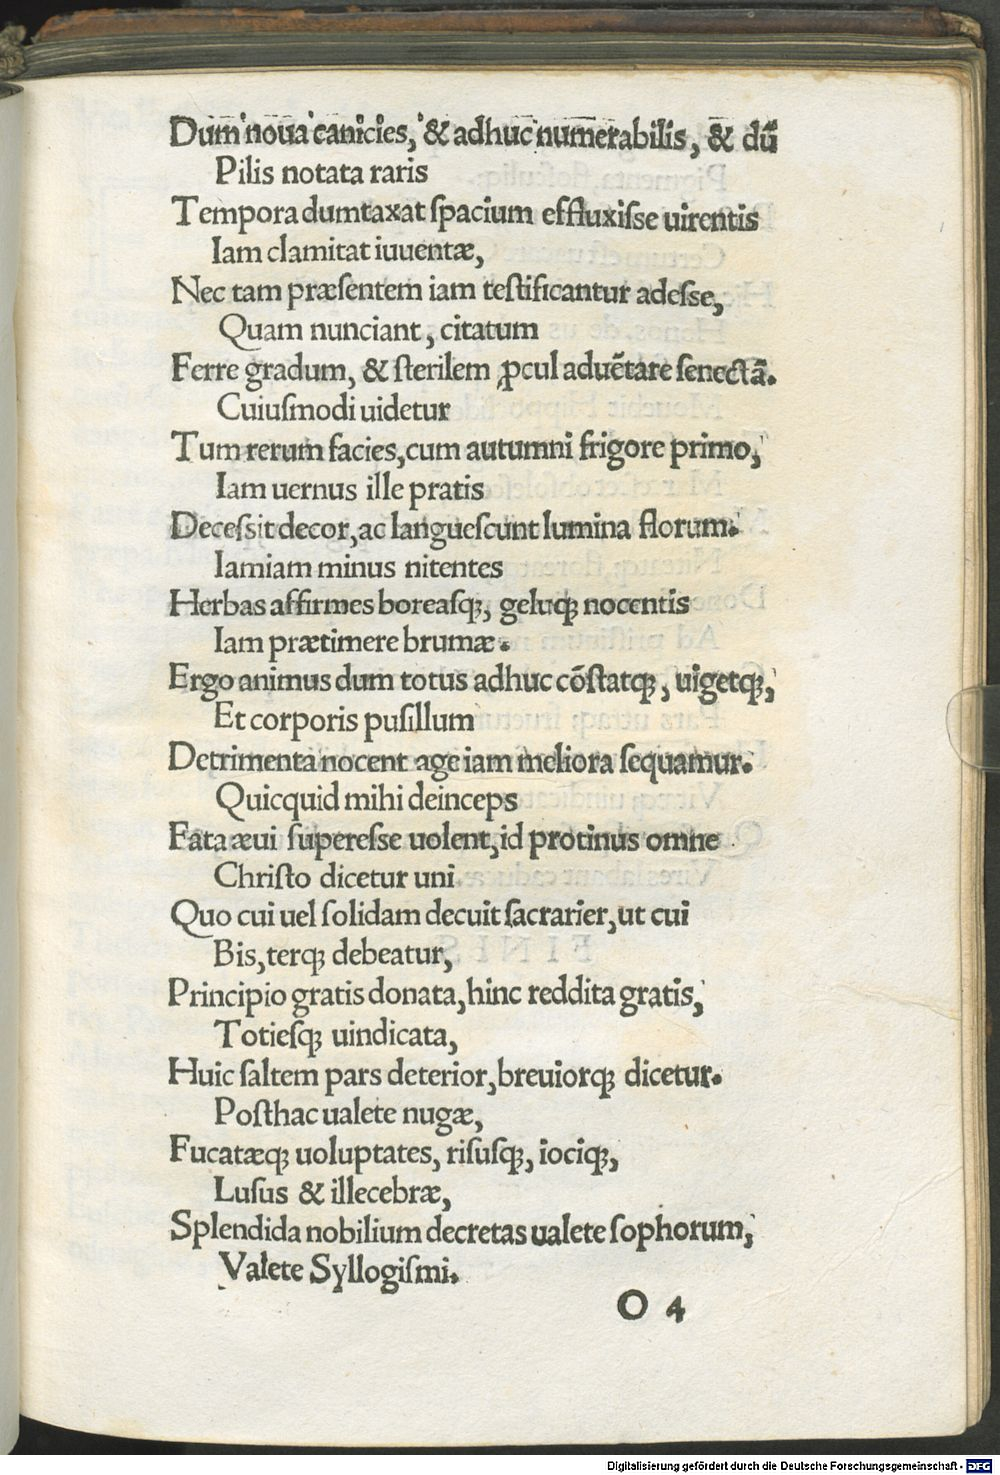 Dum noua canicies, & adhuc numerabilis, & dū
Pilis notata raris
Tempora dumtaxat ſpacium effluxiſse uirentis
Iam clamitat iuuentæ,
Nec tam præſentem iam teſtificantur adeſse,
Quam nunciant, citatum
Ferre gradum, & ſterilem ꝓcul aduētare ſenectā.
Cuiuſmodi uidetur
Tum rerum facies, cum autumni frigore primo,
Iam uernus ille pratis
Deceſsit decor, ac langueſcunt lumina florum.
Iamiam minus nitentes
Herbas affirmes boreaſq;, geluq; nocentis
Iam prætimere brumæ.
Ergo animus dum totus adhuc cōſtatq;, uigetq;,
Et corporis puſillum
Detrimenta nocent age iam meliora ſequamur.
Quicquid mihi deinceps
Fata æui ſupereſse uolent, id protinus omne
Chriſto dicetur uni.
Quo cui uel ſolidam decuit ſacrarier, ut cui
Bis, terq; debeatur,
Principio gratis donata, hinc reddita gratis,
Totieſq; uindicata,
Huic ſaltem pars deterior, breuiorq; dicetur.
Poſthac ualete nugæ,
Fucatæq; uoluptates, riſuſq;, iociq;,
Luſus & illecebræ,
Splendida nobilium decretas ualete ſophorum,
Valete Syllogiſmi.
O 4
Digitalisierung gefördert durch die Deutsche Forschungsgemeinschaft - DFG